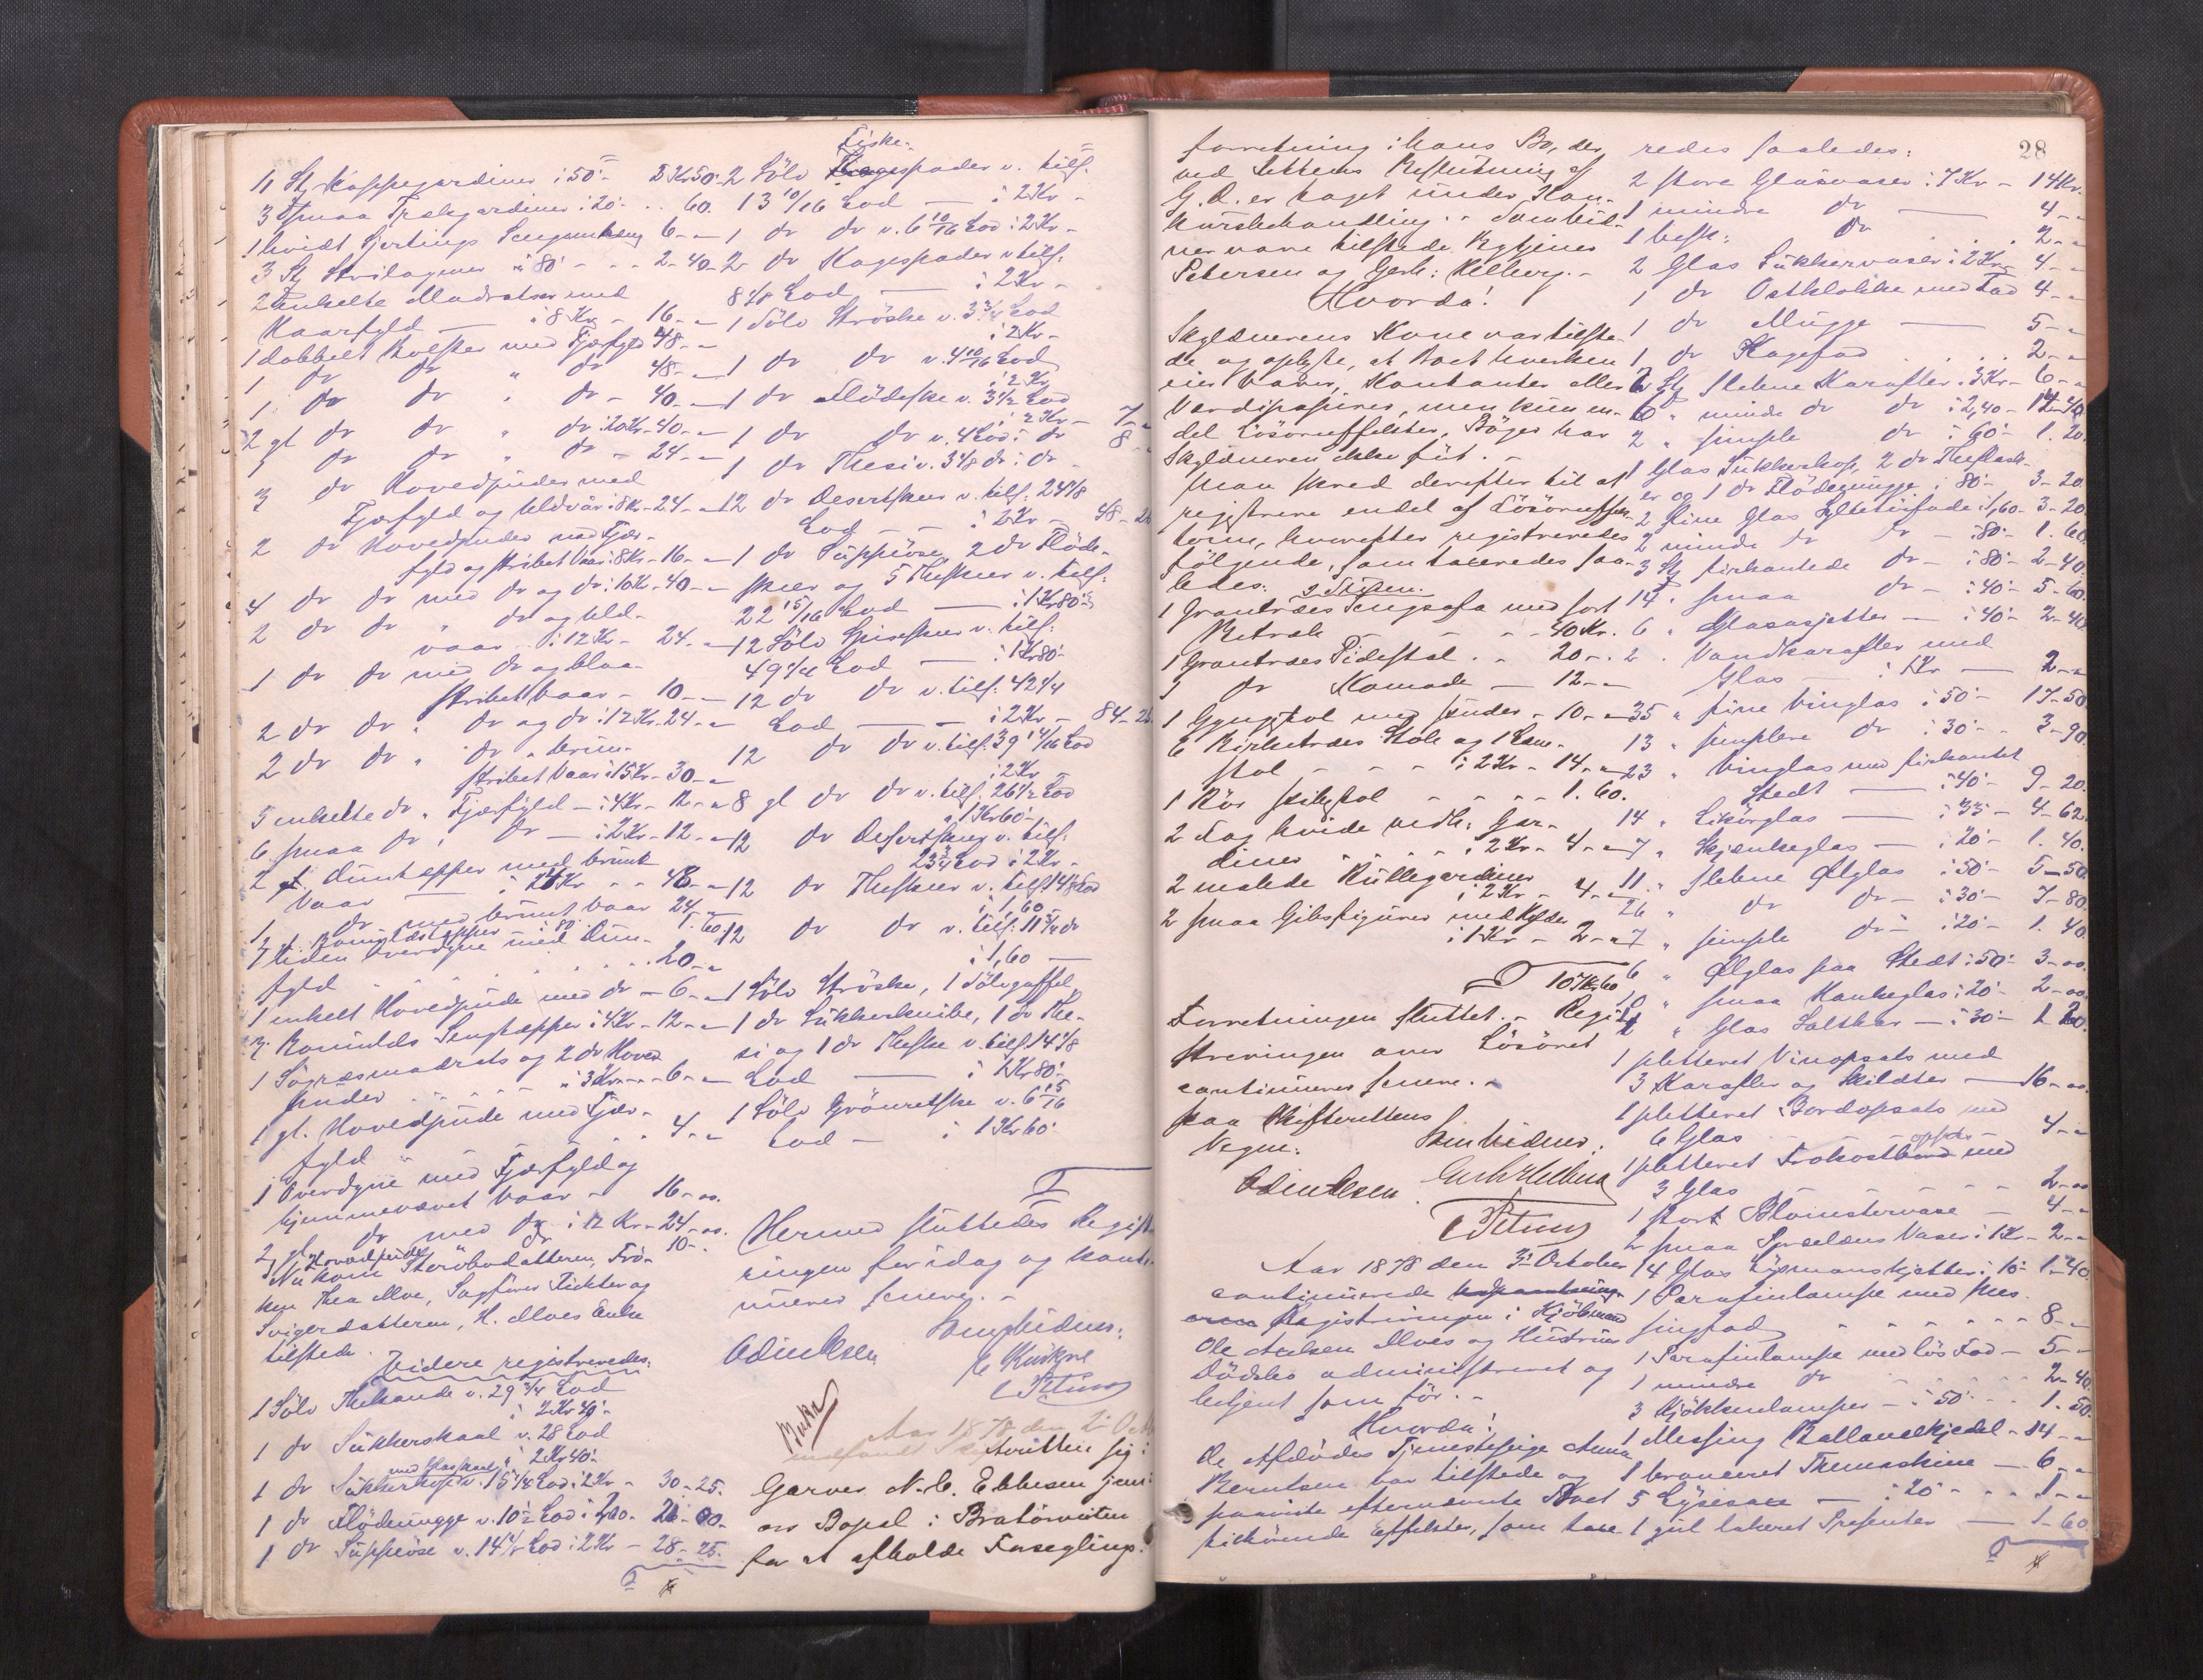 11 Stj Kappegardiner i 50'- 5 Kr 50'-
3 smaa Trækgardiner i 20'- .. 60.
1 hvidt Sjertings Sengeomhæng 6--
3 Stj Strilagener à 80'- - - 2-40-
2 enkelte Madratser med
Haarfyld — à 8 Kr - 16--
1 dobbelt Bolster med Fjærfyld 48--
1 do do " do 48--
1 do do " do - 40--
2 gl do do " do i 20 Kr - 40--
1 do do " do - 24--
3 do Hovedpuder med
Fjærfyld og Uldvar i 8 Kr - 24--
2 do Hovedpuder med Fjær-
fyld og stribet Vaar i 8 Kr - 16--
4 do do med do og do i 10 Kr - 40--
2 do do " do og Uld-
vaar i 12 Kr - 24--
1 do do med do og blaa
stribet Vaar - 10--
2 do do " do og do i 12 Kr - 24--
2 do do " do " brun-
stribet Vaar i 15 Kr - 30--
3 enkelte do " Fjærfyld - i 4 Kr - 12--
6 smaa do " do - i 2 Kr - 12--
2 gl. Duntepper med brunt
Vaar — i 24 Kr - - 48--
1 do med brunt Vaar 24
2 gl. Bomuldstepper i 80' - 1.60
1 liden Overdyne med Dun-
fyld . . . . . 20--
1 enkelt Hovedpude med do - 6--
3 Bomulds Sengtæpper i 4 Kr - 12--
1 Søgræsmadrats og 2 do Hoved
puder . . . . à 3 Kr - - 6--
1 gl. Hovedpude med Fjær-
fyld . . . . 4--
1 Overdyne med Fjærfyld og
hjemmevævet Vaar - 16-oo.
2 gl do med do i 12 Kr - 24-oo.
Hovedpuder do 10--
Nu kom Sterbodatteren, Frø-
ken Thea Moe, Sagfører Richter og
Svigerdatteren, H. Moes Enke
tilstede.
Videre registreredes:
1 Sølv Thekande v. 29 3/4 Lod
i 2 Kr 40'-
1 do Sukkerskaal v. 28 Lod
i 2 Kr 40'-
med Glasskaal
1 do Sukkerkop v. 15 1/8 Lod i 2 Kr - 30-25.
1 do Flødemugge v. 10 1/2 Lod i 2,00 - 21-00-
1 do Suppeøse v. 14 1/8 Lod i 2 Kr - 28-25.
Fiske-
2 Sølv Kagespader v. tils.
13 10/16 Lod — i 2 Kr -
1 do do v. 6 10/16 Lod i 2 Kr -
2 do Kagespader v tils.
8 4/8 Lod — i 2 Kr -
1 Sølv Strøske v. 3 3/4 Lod
i 2 Kr -
1 do do v. 4 10/16 Lod
i 2 Kr
1 do Flødeske v. 3 1/2 Lod
i 2 Kr - 7--
1 do do v. 4 Lod i do 8--
1 do Thesi v. 3 4/8 do i do -
12 do Desertskeer v. tils. 24 1/8
Lod - - i 2 Kr - 48-25
1 do Suppeøse, 2 do Fløde-
skeer og 5 Theskeer v. tils:
22 15/16 Lod — i 1 Kr 80'-
12 Sølv Spiseskeer v. tils:
49 1/4 Lod — i 1 Kr 80'-
12 do do v. tils: 42 1/4
Lod — — i 2 Kr - 84-25.
12 do do v. tils. 39 14/16 Lod
i 2 Kr
8 gl do do v. tils. 26 1/2 Lod
à 1 Kr 60'-
12 do Desertskeer v. tils:
23 3/4 Lod i 2 Kr -
12 do Theskeer v. tils 14 1/8 Lod
i 1,60 -
12 do do v. tils: 11 3/4 do
i 1,60 —
1 Sølv Strøske, 1 Sølvgaffel,
1 do Sukkerknibe, 1 do The-
si og 1 do Theske v. tils 14 1/8
Lod — i 1 Kr 80'-
1 Sølv Grøtretske v. 6 15/16
Lod - i 1 Kr 60'
Hermed sluttedes Registe-
ringen for idag og konti-
nueres senere. -
Samfrænder:
Odin Olsen
C Petersen
Aar 1878 den 2' Octob
indfandt Skifteretten sig i
Garver N. C. Ebbesen
ors Bopæl i Bratørveiten
for at afholde Forseglings-
28
forretning i hans Bo, der
ved Rettens Beslutning af
G. D. er taget under Kon-
kursbehandling. - Samtid-
ner vare tilstede Bytjener
Petersen og Gerh: Helberg. -
Hvorda!
Skyldnerens Kone var tilste-
de og oplyste, at Boet hverken
eier Varer, Kontanter eller
Værdipapirer, men kun en-
del Løsøreeffekter, Bøger har
Skyldneren ikke ført. -
Man skred derefter til at
registrere endel af Løsøreeffek-
terne, hvorefter registreredes
følgende, som taxeredes saa-
ledes: I Stuen.
1 Grantræes Sengsofa med sort
Betræk - - - 40 Kr.
1 Grantræes Pidestal . . 20--
1 do Komode — 12--
1 Gyngstol med Puder - 10--
6 Birketræes Stole og 1 Læne-
stol - - - i 2 Kr - 14--
1 Rør Hvilestol - - - 1.60.
2 Fag hvide Gar-
diner . . . . i 2 Kr - 4--
2 malede Rullegardiner
i 2 Kr - 4--
2 smaa Gibsfigurer med Hylder
i 1 Kr - 2--
107 Kr 60
Forretningen sluttet. - Regi-
streringen over Løsøret
continueres senere. -
Paa Skifterettens
Vegne: Samtidner:
Odin Olsen. Gerh Helberg
C Petersen
Aar 1878 den 3' October
continuerede
Registreringen i Kjøbmand
Ole Moes og Hustrues
Dødsbo administreret og
betjent som før. -
Hvorda!
De afdødes Tjenestepige Anna
Berntsen var tilstede og
paaviste efternævnte Boet
tilhørende Effekter, som taxe-
redes saaledes:
2 store Glasvaser i 7 Kr - 14 Kr.
1 mindre do — 4--
1 besk: do . . 2--
2 Glas Sukkervaser i 2 Kr 4--
1 do Ostklokke med Fad 4--
1 do Mugge — 5--
1 do Kagefad . . . . 2--
2 Stj slebne Karafler i 3 Kr - 6--
6 " mindre do do i 2,40 - 14-40.
2 " simple do i 60'- 1.20.
1 Glas Sukkerkop, 2 do Theflask-
er og 1 do Flødemugge i 80'- 3-20.
2 fine Glas Syltetøifade i 1,60 - 3-20
2 mindre do do - i 80'- 1.60
3 Stj firkantede do - i 80'- 2-40.
14 " smaa do - i 40'- 5-60.
6 " Glasasjetter - i 40'- 2-40
2 " Vandkarafler med
Glas - i 1 Kr — 2--
35 " fine Vinglas i 50'- 17-50
13 " simplere do i 30'- . 3-90.
23 " Vinglas med firkantet
Stedt — i 40'- 9-20.
14 " Likørglas — i 33'- 4-62.
7 " Skjænkeglas - i 20'- 1.40.
11 " slebne Ølglas i 50'- 5-50
26 " do do - i 30'- 7-80
7 " simple do - i 20'- 1.40.
6 " Ølglas paa Stedt i 50'- 3-oo.
10 " smaa Hankeglas i 20'- 2-oo.
4 " Glas Saltkar - i 30'- 1 20.
1 pletteret Vinopsats med
3 Karafler og Skildter — 16-oo.
1 pletteret Bordopsats med
6 Glas 4--
opsats
1 pletteret Frokostbord med
3 Glas . - - - - - 2-oo
1 stort Blomstervase - 4--
2 smaa Porcelæns Vaser i 1 Kr - 2--
14 Glas Lysmanskjetter i 10'- 1-40.
1 Parafinlampe med Mes-
singfod . . . . . . 8--
1 Parafinlampe med løs Fod - 5--
1 mindre do . . . . 2-40.
3 Kjøkkenlamper - i 50'- . . 1.50.
1 Messing Ballancekjedel - 14--
1 bronceret Themaskine — 6--
5 Lysesaxe — i 20'- . . 1--
1 gul lakeret Presenter — 1-60